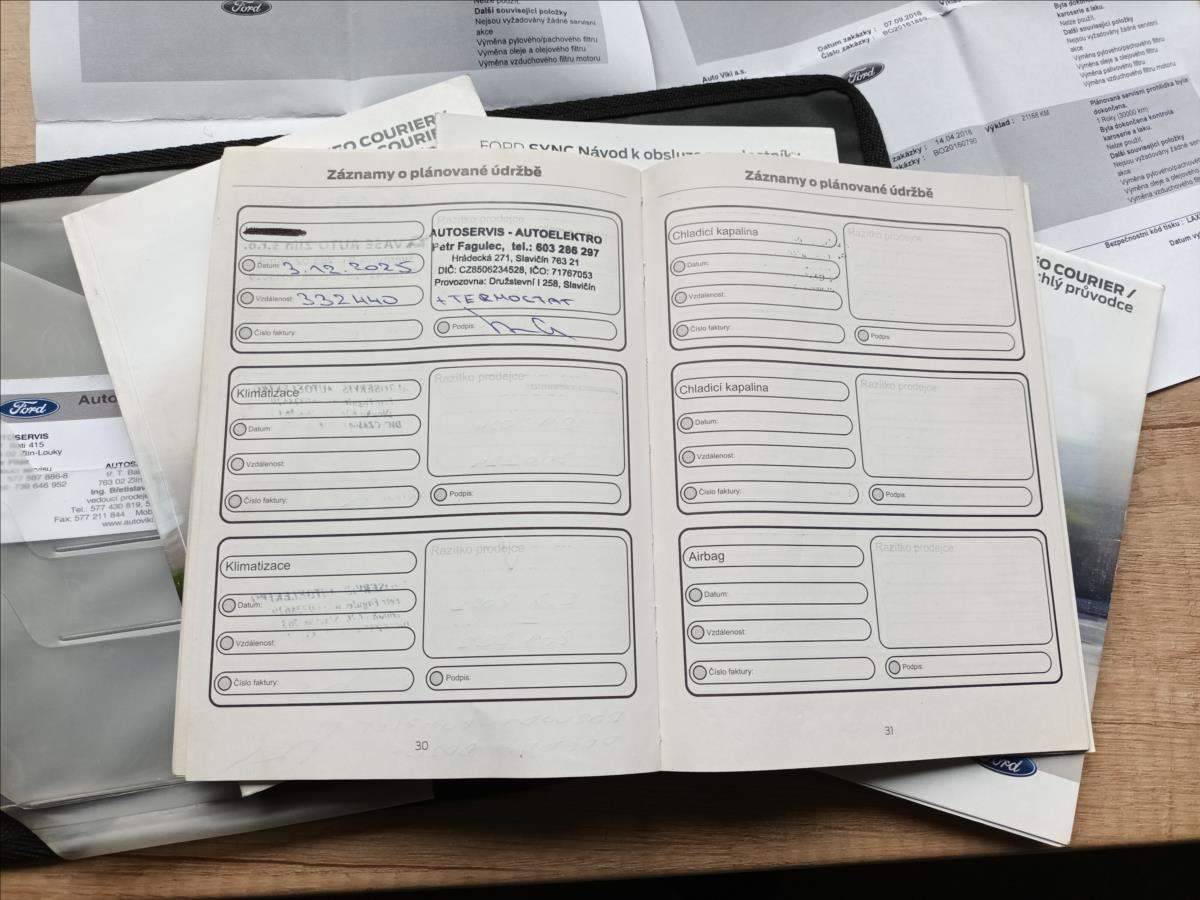 Ford
Další související položky
Nejsou vyžadovány žádné servisní
akce
Výměna pylového/pachového filtru
Výměna oleje a olejového filtru
Výměna vzduchového filtru motoru
Datum zakázky : 07.09.2016
Číslo zakázky :
Auto Viki a.s.
Ford
karoserie a laku.
Nelze použít.
Další související položky
Nejsou vyžadovány žádné servisní
akce
Výměna pylového/pachového filtru
Výměna oleje a olejového filtru
Výměna palivového filtru
Výměna vzduchového filtru motoru
Plánovaná servisní prohlídka byla
dokončena.
1 Roky (30000 km)
Byla dokončena kontrola
karoserie a laku.
Nelze použít.
Další související položky
Nejsou vyžadovány žádné servisní
akce
Výměna pylového/pachového filtru
zakázky : 14.04.2016
zakázky : BO20160790
21158 KM
Bezpečnostní kód tisku :
COURIER
FORD SYNC Návod k obsluze
COURIER /
průvodce
Záznamy o plánované údržbě
Datum: 3.12.2025
Vzdálenost: 332440
Číslo faktury:
Razítko prodejce
AUTOSERVIS - AUTOELEKTRO
Petr Fagulec, tel.: 603 286 297
Hrádecká 271, Slavičín 763 21
DIČ: CZ8506234528, IČO: 71767053
Provozovna: Družstevní I 258, Slavičín
+ TERMOSTAT
Podpis:
Klimatizace
Datum:
Vzdálenost:
Číslo faktury:
Razítko prodejce
Podpis:
Klimatizace
Datum:
Vzdálenost:
Číslo faktury:
Razítko prodejce
Podpis:
30
Záznamy o plánované údržbě
Chladicí kapalina
Datum:
Vzdálenost:
Číslo faktury:
Razítko prodejce
Podpis:
Chladicí kapalina
Datum:
Vzdálenost:
Číslo faktury:
Razítko prodejce
Podpis:
Airbag
Datum:
Vzdálenost:
Číslo faktury:
Razítko prodejce
Podpis:
31
Ford
Auto
415
Zlín-Louky
763 02 Zlín
Ing. Břetislav
vedoucí prodeje
Tel.: 577 430 819, 5
Fax: 577 211 844 Mob
www.autoviki
Ford